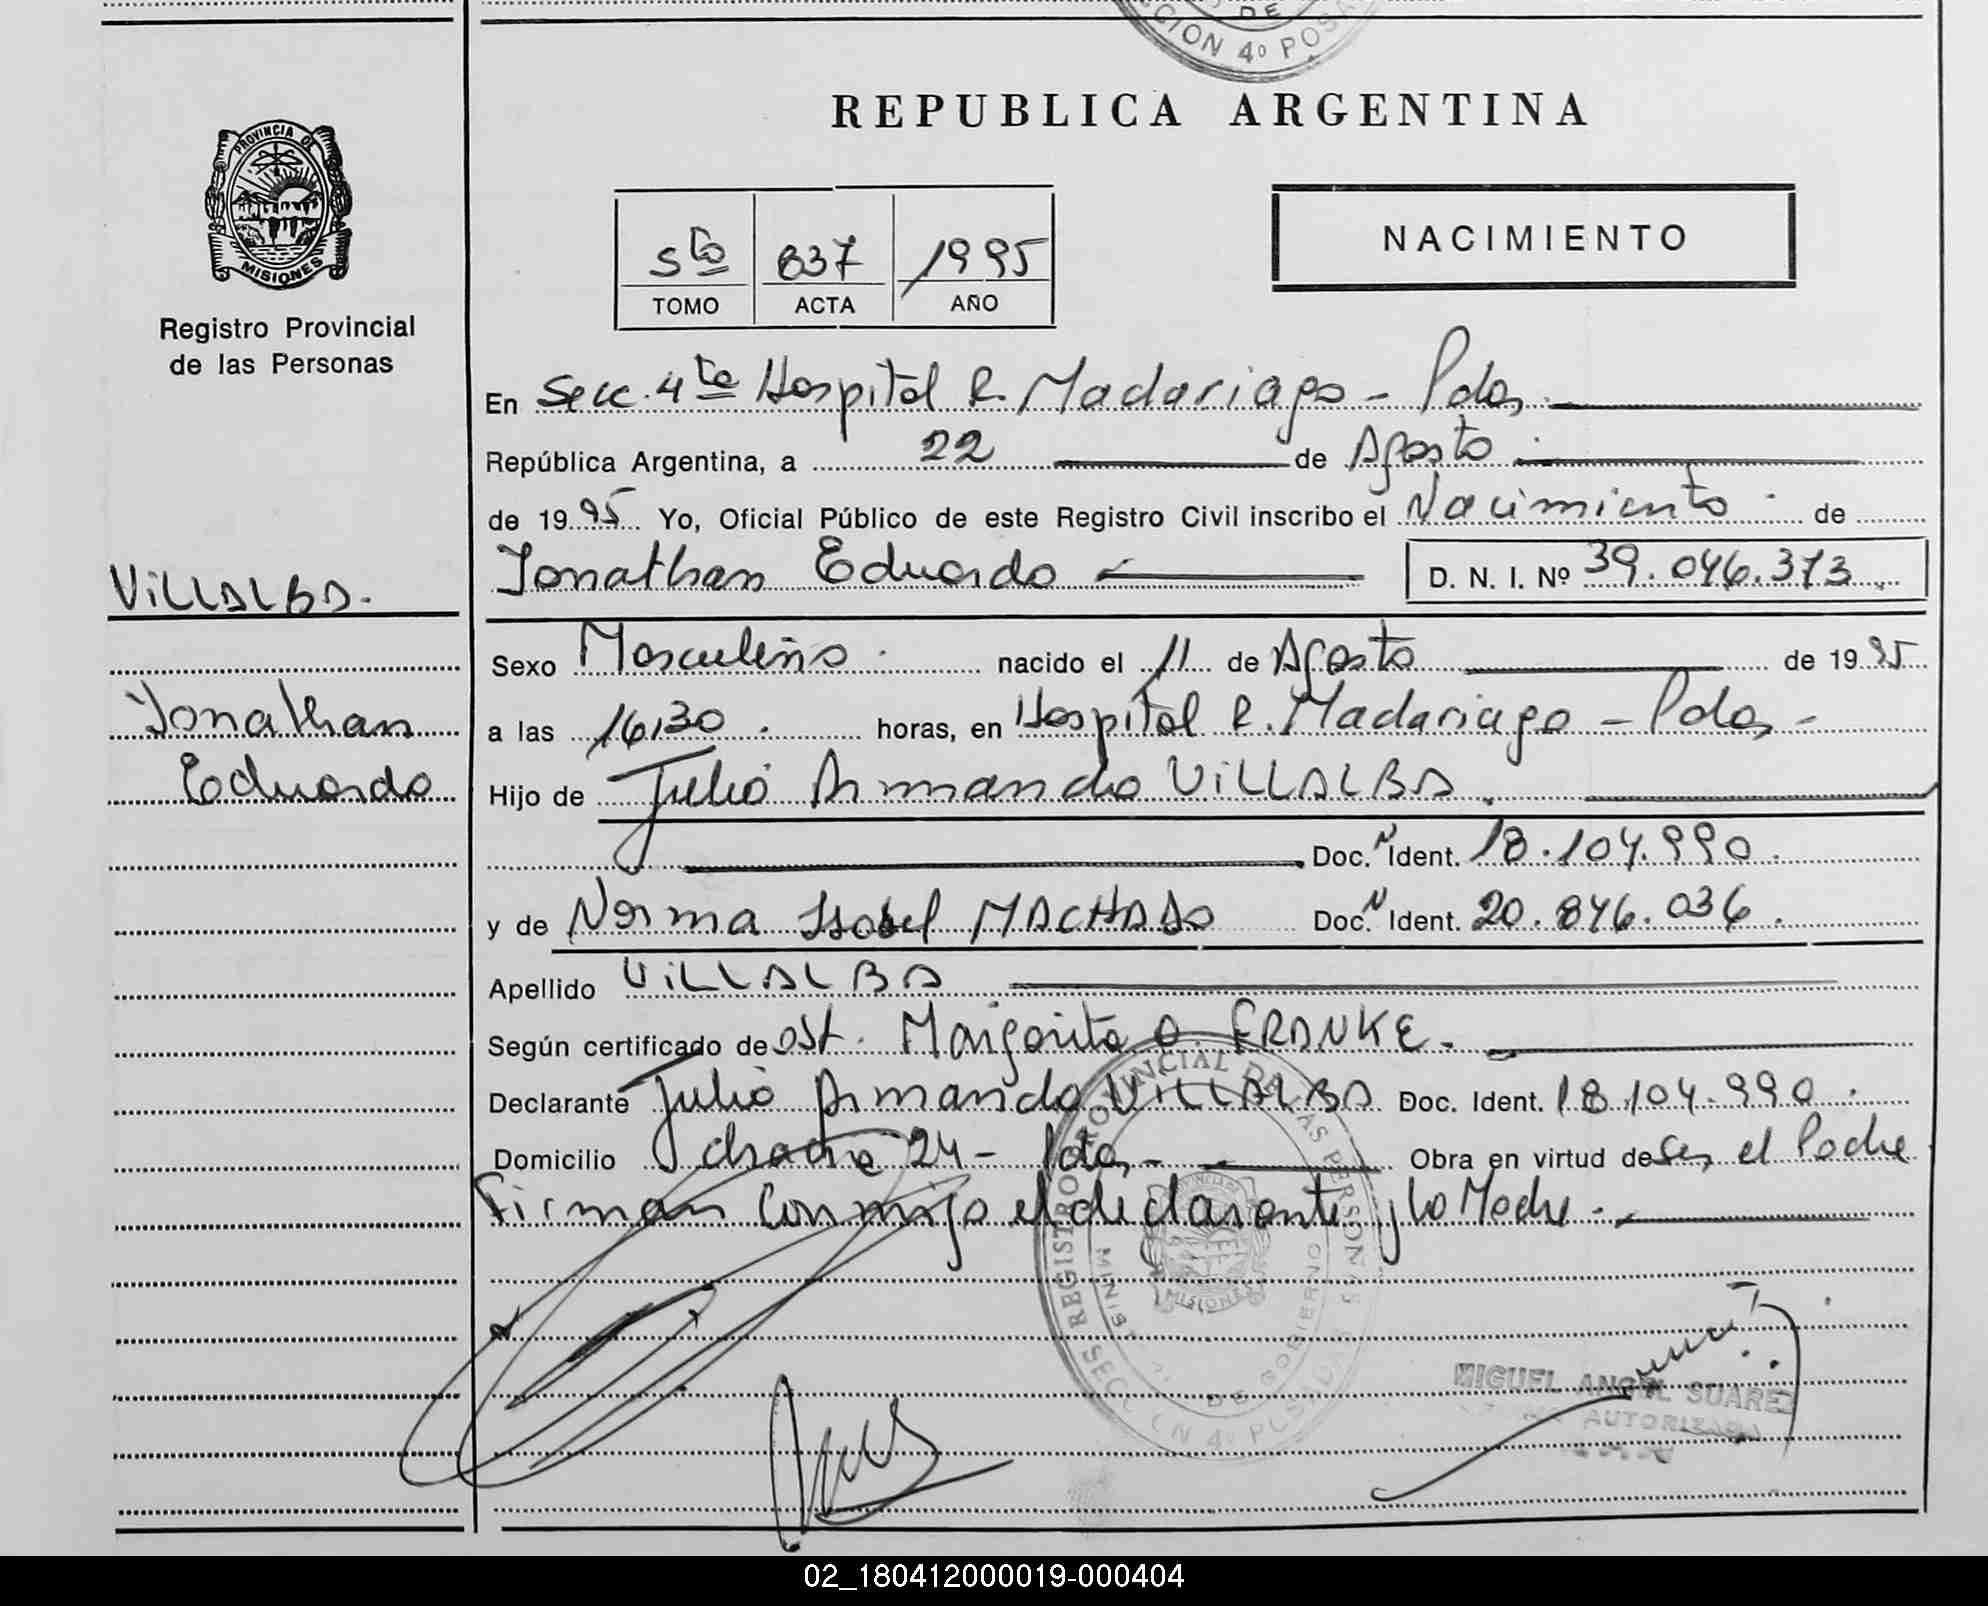 DE
CION 4º POSA
REPUBLICA ARGENTINA
PROVINCIA DE
MISIONES
Registro Provincial
de las Personas
5to 837 1995
TOMO ACTA AÑO
NACIMIENTO
En Secc. 4ta Hospital R. Madariaga - Pdas.
República Argentina, a 22 de Agosto
de 1995 Yo, Oficial Público de este Registro Civil inscribo el Nacimiento de
Jonathan Eduardo D. N. I. Nº 39.046.373
VILLALBA.
Jonathan
Eduardo
Sexo Masculino. nacido el 11 de Agosto de 1995
a las 16,30. horas, en Hospital R. Madariaga - Pdas -
Hijo de Julio Armando VILLALBA.
Doc. N Ident. 18.104.990.
y de Norma Isabel MACHADO Doc. N Ident. 20.846.036.
Apellido VILLALBA
Según certificado de Obst. Margarita O. FRANKE.
Declarante Julio Armando VILLALBA Doc. Ident. 18.104.990.
Domicilio chacra 24 - Pdas - Obra en virtud de Ser el Padre
Firman conmigo el declarante y la Madre.
REGISTRO PROVINCIAL DE LAS PERSONAS
DE GOBIERNO
MISIONES
MIGUEL ANGEL SUAREZ
AUTORIZADA
02_180412000019-000404